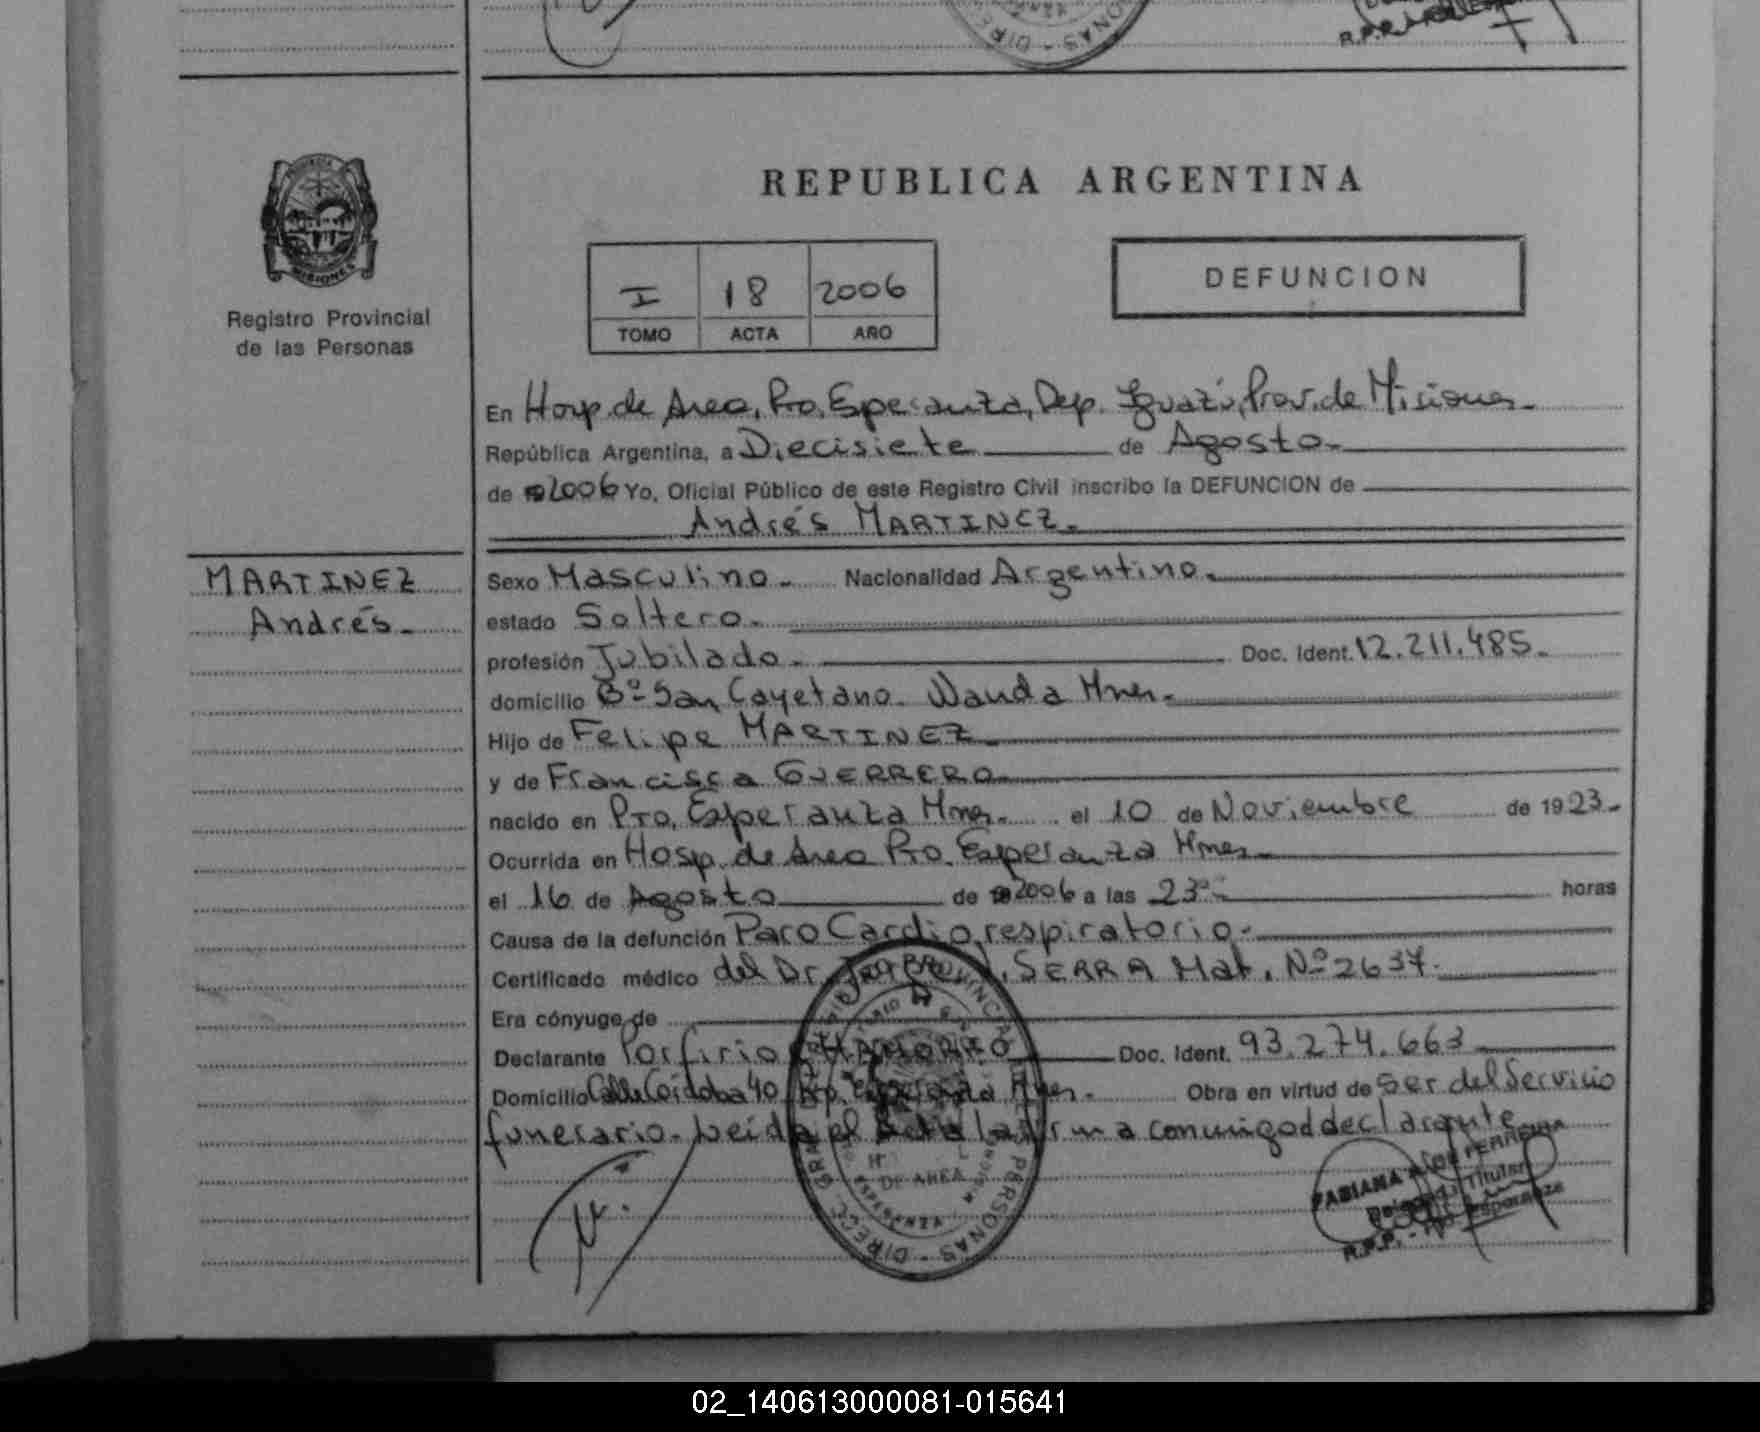 REPUBLICA ARGENTINA
MISIONES
Registro Provincial
de las Personas
I 18 2006
TOMO ACTA AÑO
DEFUNCION
En Hosp. de Area, Pto. Esperanza, Dep. Iguazú, Prov. de Misiones.
República Argentina, a Diecisiete de Agosto.
de 2006 Yo, Oficial Público de este Registro Civil inscribo la DEFUNCION de
Andrés MARTINEZ.
MARTINEZ
Andrés.
Sexo Masculino. Nacionalidad Argentino.
estado Soltero.
profesión Jubilado. Doc. Ident. 12.211.485.
domicilio Bº San Cayetano. Wanda Mnes.
Hijo de Felipe MARTINEZ
y de Francisca GUERRERO
nacido en Pto. Esperanza Mnes. el 10 de Noviembre de 1923.
Ocurrida en Hosp. de Area Pto. Esperanza Mnes.
el 16 de Agosto de 2006 a las 23 horas
Causa de la defunción Paro Cardiorespiratorio.
Certificado médico del Dr. SERRA Mat. Nº 2637.
Era cónyuge de
Declarante Porfirio Doc. Ident. 93.274.663
Domicilio Calle Córdoba 40 Pto. Esperanza Mnes. Obra en virtud de Ser del Servicio
funerario. Leida el Acta la firma conmigo el declarante
DE AREA
PERSONAS - DIRECC. GRAL.
FABIANA FERREYRA
Titular
R.P.P. - Pto. Esperanza
02_140613000081-015641